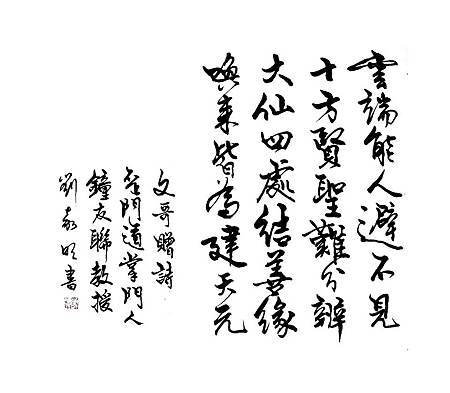 雲端能人避不見
十方賢聖難分辨
大仙四處結善緣
喚來皆為建天元
文哥贈詩
門道掌門人
鐘友聯教授
劉明書